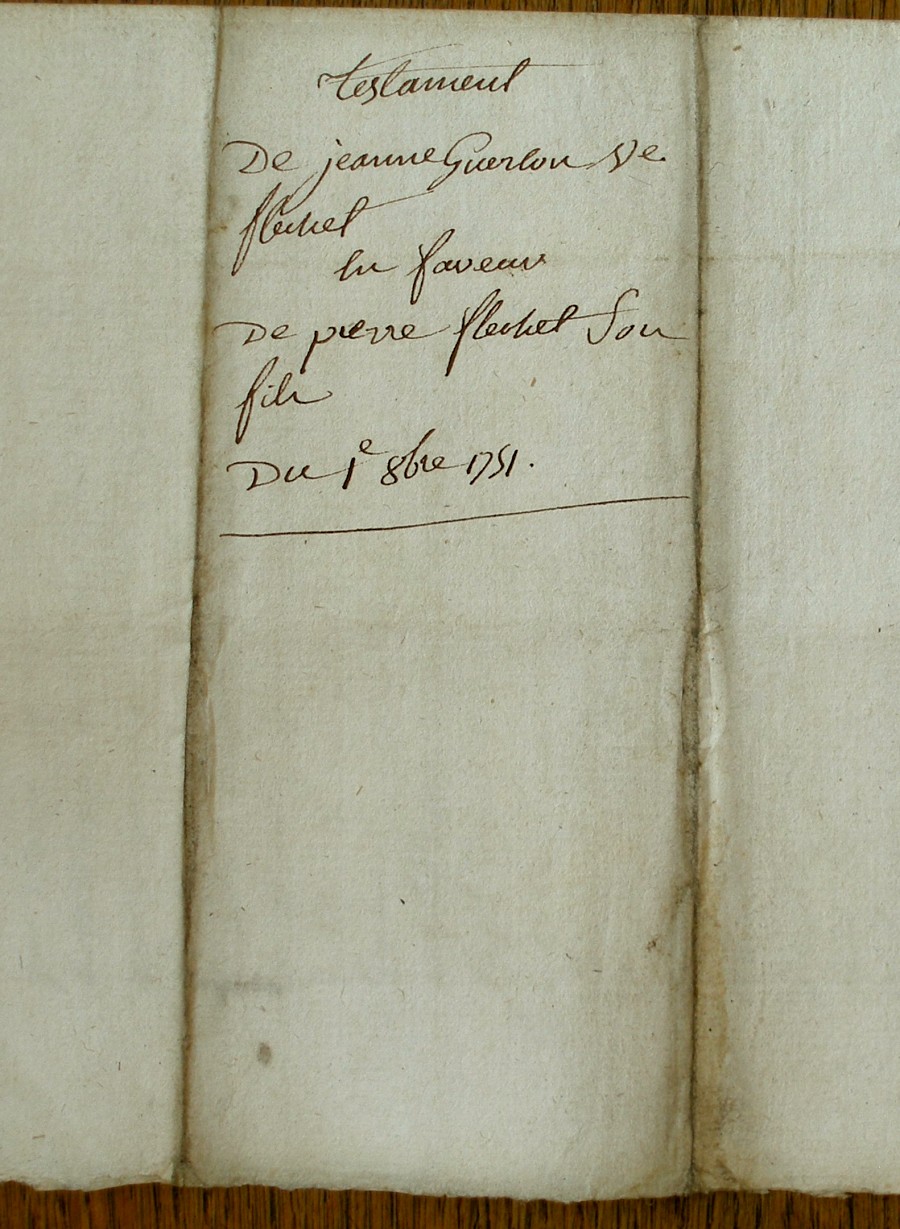 testament
De jeanne Guerlon Ve.
flechet
en faveur
De pierre flechet Son
fils
Du 1e 8bre 1751.